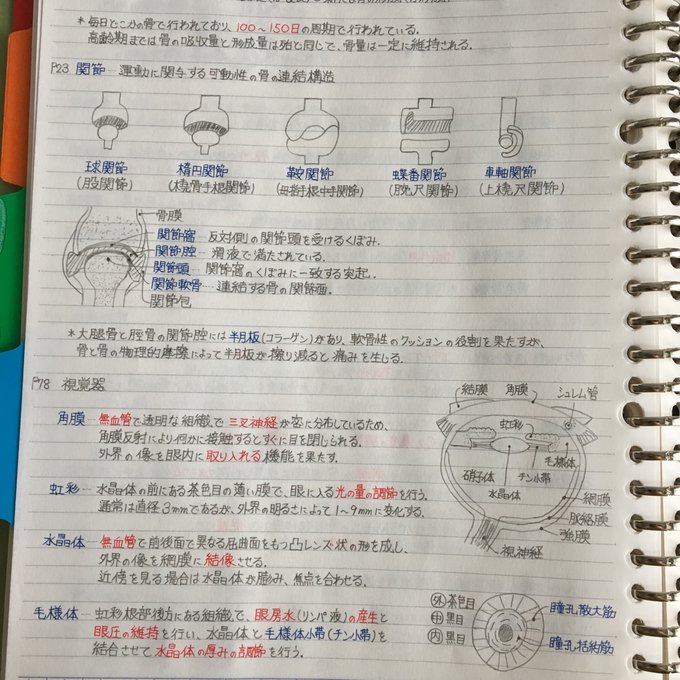 *毎日どこかの骨で行われており、100〜150日の周期で行われている。
高齢期までは骨の吸収量と形成量は殆と同じで、骨量は一定に維持される。
P23 関節…運動に関与する可動性の骨の連結構造
球関節 楕円関節 鞍関節 蝶番関節 車軸関節
(股関節) (橈骨手根関節) (母指手根中手関節) (腕尺関節) (上橈尺関節)
骨膜
関節窩…反対側の関節頭を受けるくぼみ.
関節腔…滑液で満たされている.
関節頭…関節窩のくぼみに一致する突起.
関節軟骨…連結する骨の関節面.
関節包
*大腿骨と脛骨の関節腔には半月板(コラーゲン)があり、軟骨性のクッションの役割を果たすが、
骨と骨の物理的摩擦によって半月板が擦り減ると痛みを生じる.
P78 視覚器
角膜…無血管で透明な組織で三叉神経が密に分布しているため、
角膜反射により何かに接触するとすぐに目を閉じられる.
外界の像を眼内に取り入れる機能を果たす.
虹彩…水晶体の前にある茶色目の薄い膜で、眼に入る光の量の調節を行う.
通常は直径3mmであるが、外界の明るさによって1〜9mmに変化する.
水晶体…無血管で前後面で異なる屈曲面をもつ凸レンズ状の形を成し、
外界の像を網膜に結像させる.
近傍を見る場合は水晶体が膨み、焦点を合わせる.
毛様体…虹彩根部後方にある組織で、眼房水(リンパ液)の産生と
眼圧の維持を行い、水晶体と毛様体小帯(チン小帯)を
結合させて水晶体の厚みの調節を行う.
結膜 角膜 シュレム管
虹彩
毛様体
硝子体 チン小帯
水晶体
網膜
脈絡膜
強膜
視神経
外 茶色目
中 黒目
内 黒目
瞳孔散大筋
瞳孔括約筋